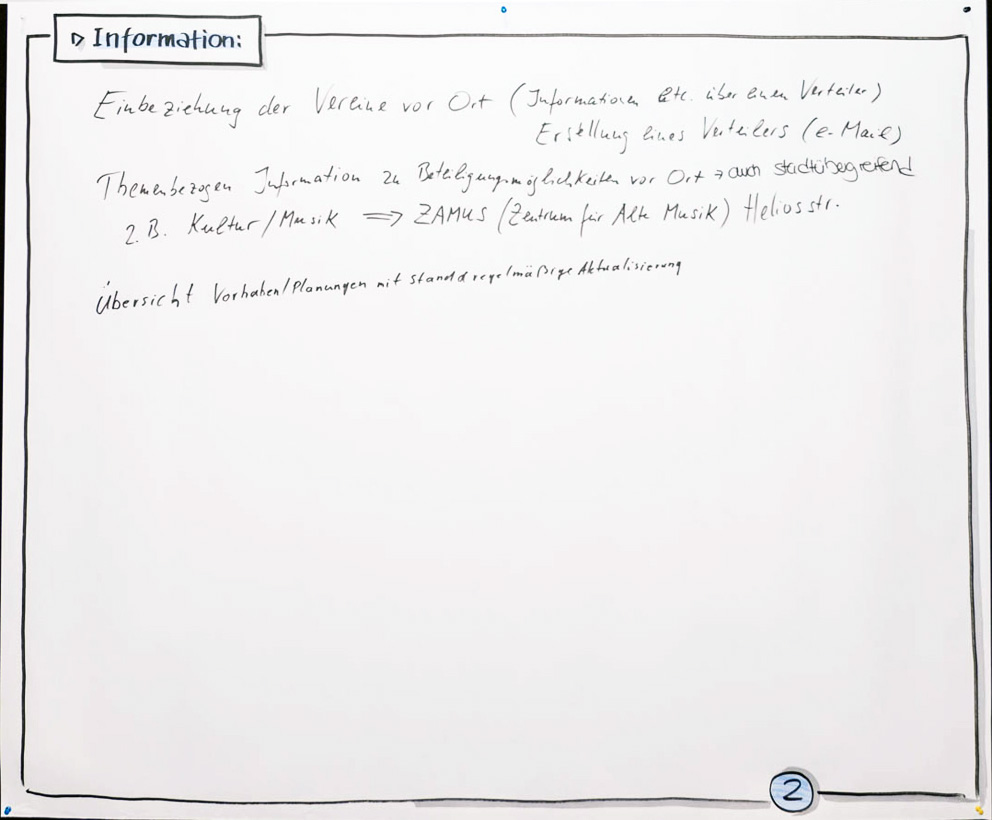 ▷ Information:
Einbeziehung der Vereine vor Ort (Informationen etc. über einen Verteiler)
Erstellung eines Verteilers (e-Mail)
Themenbezogen Information zu Beteiligungsmöglichkeiten vor Ort → auch stadtübegreifend
z.B. Kultur/Musik ⇒ ZAMUS (Zentrum für Alte Musik) Heliosstr.
Übersicht Vorhaben/Planungen mit Stand & regelmäßige Aktualisierung
2